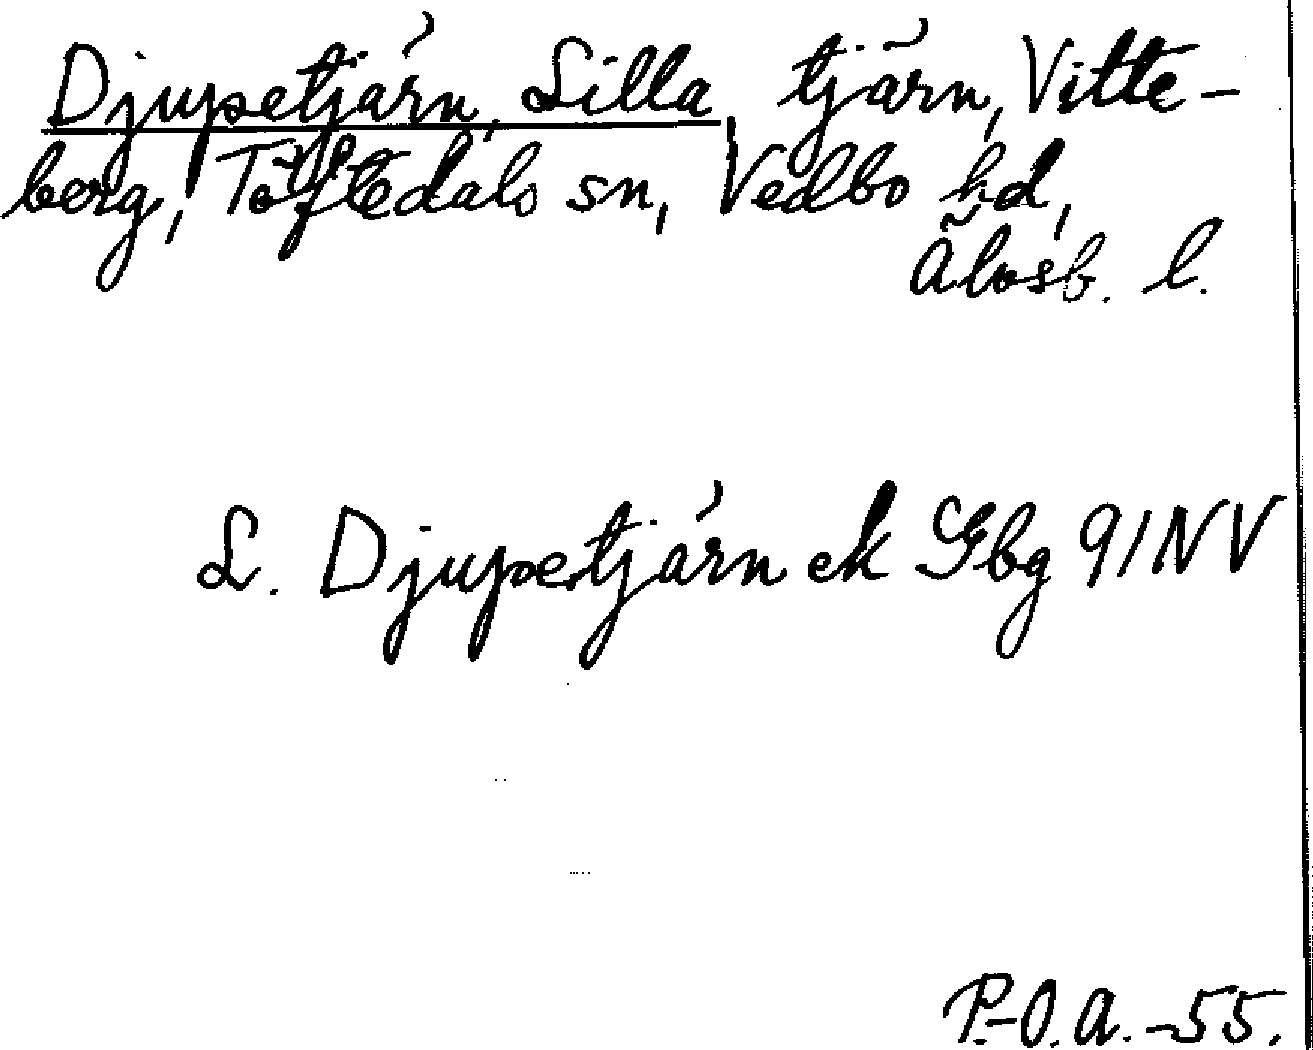 Djupetjärn, Lilla, tjärn, Vitte-
berg, Töftedals sn, Vedbo hd,
Älvsb. l.
L. Djupetjärn ek Gbg 91 NV
P.-O. A. -55.